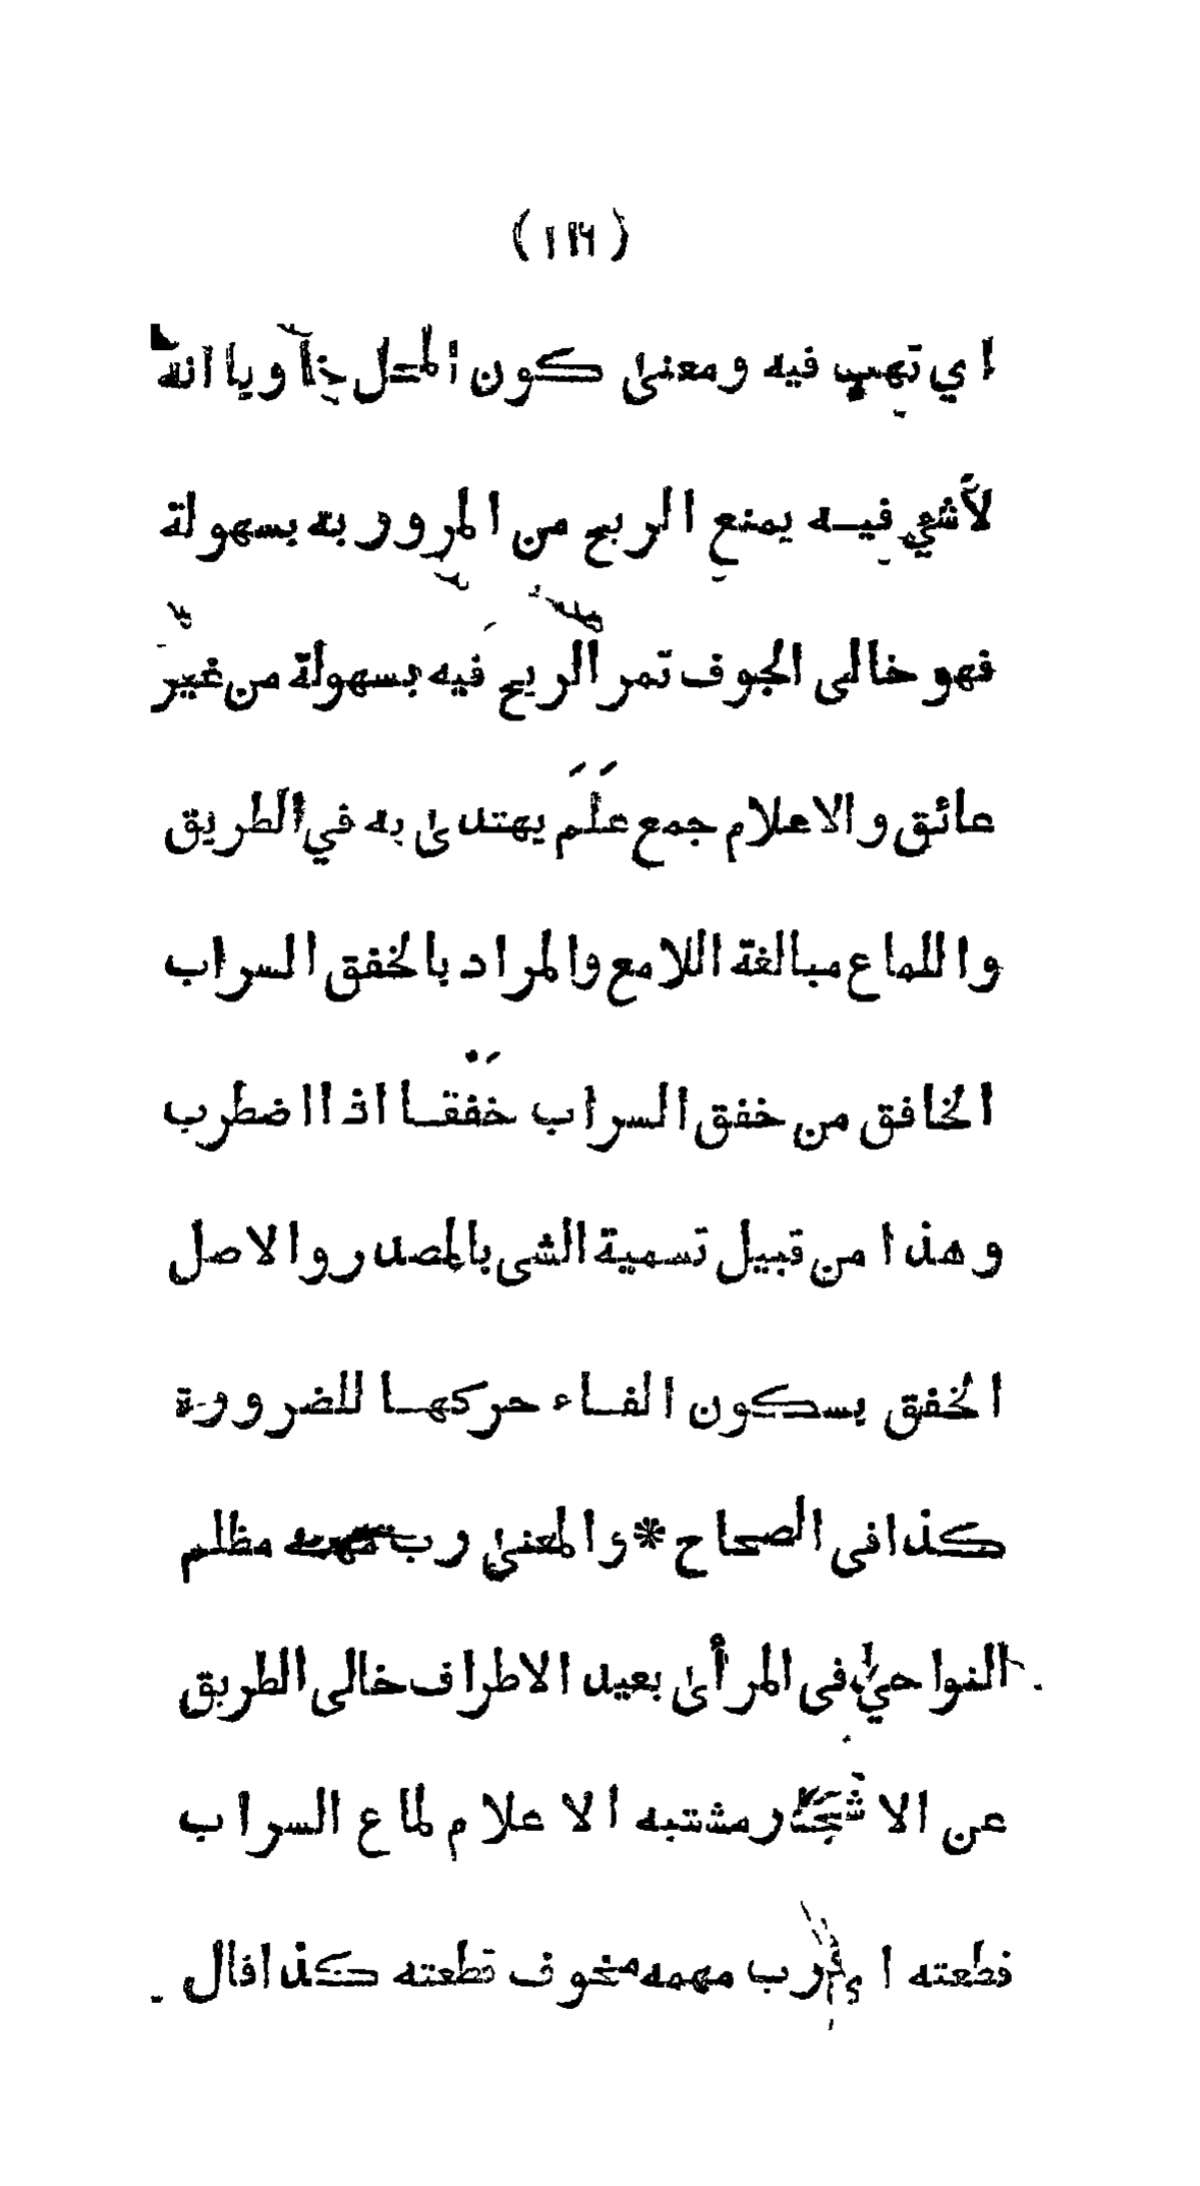 (١٩٦)
اي تهب فيه ومعنى كون المحل خاويا انه
لاشي فيه يمنع الريح من المرور به بسهولة
فهو خالى الجوف تمر الريح فيه بسهولة من غير
عائق والاعلام جمع عَلَم يهتدى به في الطريق
واللماع مبالغة اللامع والمراد بالخفق السراب
الخافق من خفق السراب خفقا اذا اضطرب
وهذا من قبيل تسمية الشى بالمصدر والاصل
الخفق بسكون الفاء حركها للضرورة
كذا فى الصحاح * والمعنى رب مهمه مظلم
النواحي فى المرأى بعيد الاطراف خالى الطريق
عن الاشجار مشتبه الاعلام لماع السراب
قطعته اى رب مهمه مخوف قطعته كذا قال